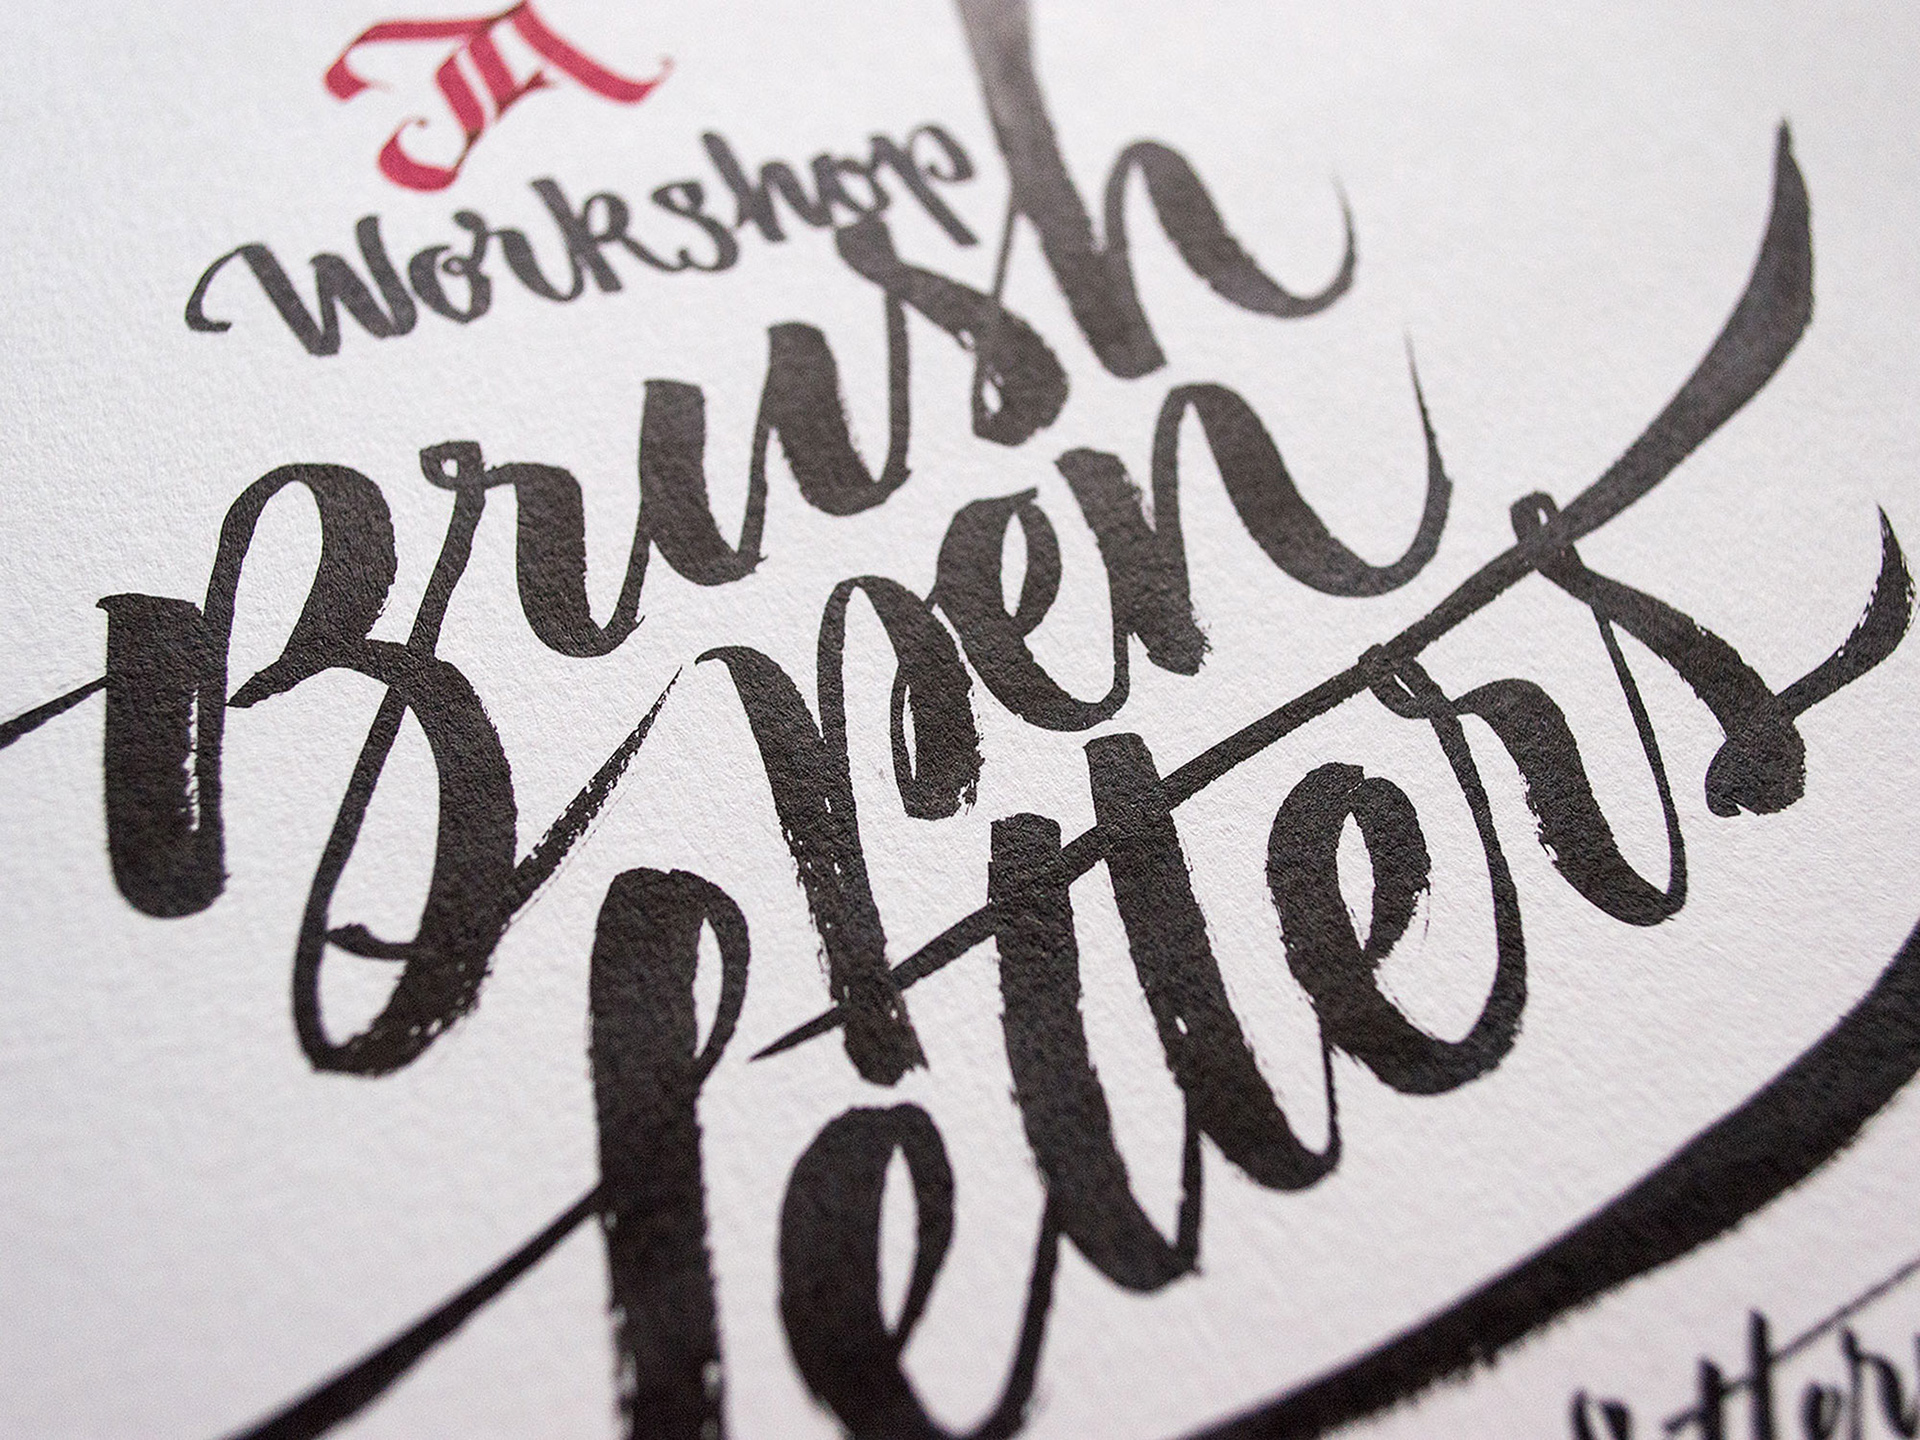 Workshop
Brush
pen
letters